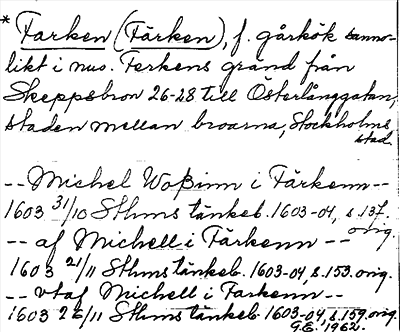 * Farken (Färken), f. gårkök sanno-
likt i nuv. Ferkens gränd från
Skeppsbron 26-28 till Österlånggatan,
staden mellan broarna, Stockholms
stad.
-- Michel Woßinn i Färkenn --
1603 31/10 Sthms tänkeb. 1603-04, s. 137.
orig.
-- af Michell i Färkenn --
1603 21/11 Sthms tänkeb. 1603-04, s. 153. orig.
-- vtaf Michell i Farkenn --
1603 26/11 Sthms tänkeb. 1603-04, s. 159. orig.
G.E. 1962.